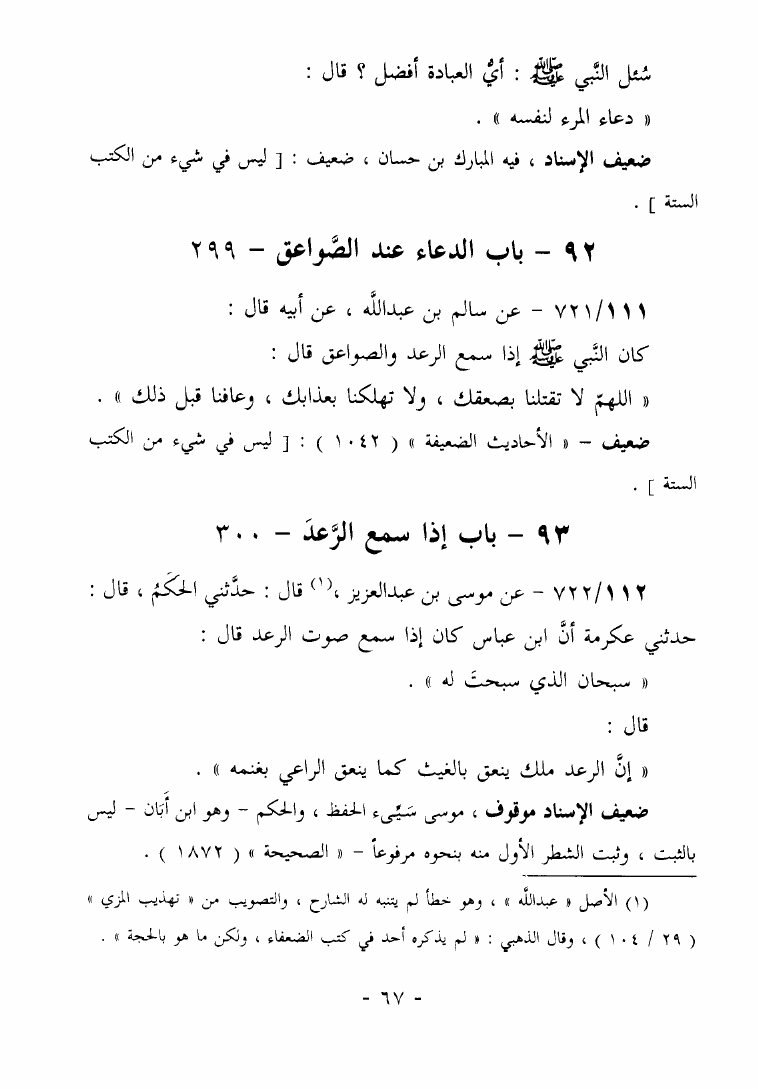 سُئل النَّبي ﷺ : أيُّ العبادة أفضل ؟ قال :
« دعاء المرء لنفسه » .
ضعيف الإسناد ، فيه المبارك بن حسان ، ضعيف : [ ليس في شيء من الكتب
الستة ] .
٩٢ – باب الدعاء عند الصَّواعق – ٢٩٩
٧٢١/١١١ – عن سالم بن عبداللَّه ، عن أبيه قال :
كان النَّبي ﷺ إذا سمع الرعد والصواعق قال :
« اللهمّ لا تقتلنا بصعقك ، ولا تهلكنا بعذابك ، وعافنا قبل ذلك » .
ضعيف – « الأحاديث الضعيفة » ( ١٠٤٢ ) : [ ليس في شيء من الكتب
الستة ] .
٩٣ – باب إذا سمع الرَّعدَ – ٣٠٠
٧٢٢/١١٢ – عن موسى بن عبدالعزيز ،(١) قال : حدَّثني الحَكَمُ ، قال :
حدثني عكرمة أنَّ ابن عباس كان إذا سمع صوت الرعد قال :
« سبحان الذي سبحتَ له » .
قال :
« إنَّ الرعد ملك ينعق بالغيث كما ينعق الراعي بغنمه » .
ضعيف الإسناد موقوف ، موسى سَيِّىء الحفظ ، والحكم – وهو ابن أَبَان – ليس
بالثبت ، وثبت الشطر الأول منه بنحوه مرفوعاً – « الصحيحة » ( ١٨٧٢ ) .
(١) الأصل « عبداللَّه » ، وهو خطأ لم يتنبه له الشارح ، والتصويب من « تهذيب المزي »
( ٢٩ / ١٠٤ ) ، وقال الذهبي : « لم يذكره أحد في كتب الضعفاء ، ولكن ما هو بالحجة » .
- ٦٧ -